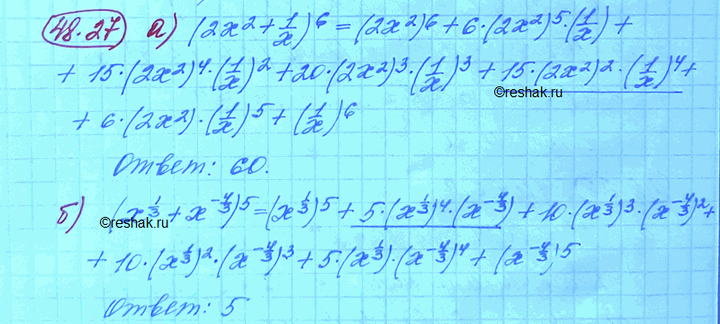 48.27 а) (2x² + 1/x)⁶ = (2x²)⁶ + 6·(2x²)⁵·(1/x) +
+ 15·(2x²)⁴·(1/x)² + 20·(2x²)³·(1/x)³ + 15·(2x²)²·(1/x)⁴ +
©reshak.ru
+ 6·(2x²)·(1/x)⁵ + (1/x)⁶
Ответ: 60.
б) (x^(1/3) + x^(-4/3))⁵ = (x^(1/3))⁵ + 5·(x^(1/3))⁴·(x^(-4/3)) + 10·(x^(1/3))³·(x^(-4/3))² +
©reshak.ru
+ 10·(x^(1/3))²·(x^(-4/3))³ + 5·(x^(1/3))·(x^(-4/3))⁴ + (x^(-4/3))⁵
Ответ: 5